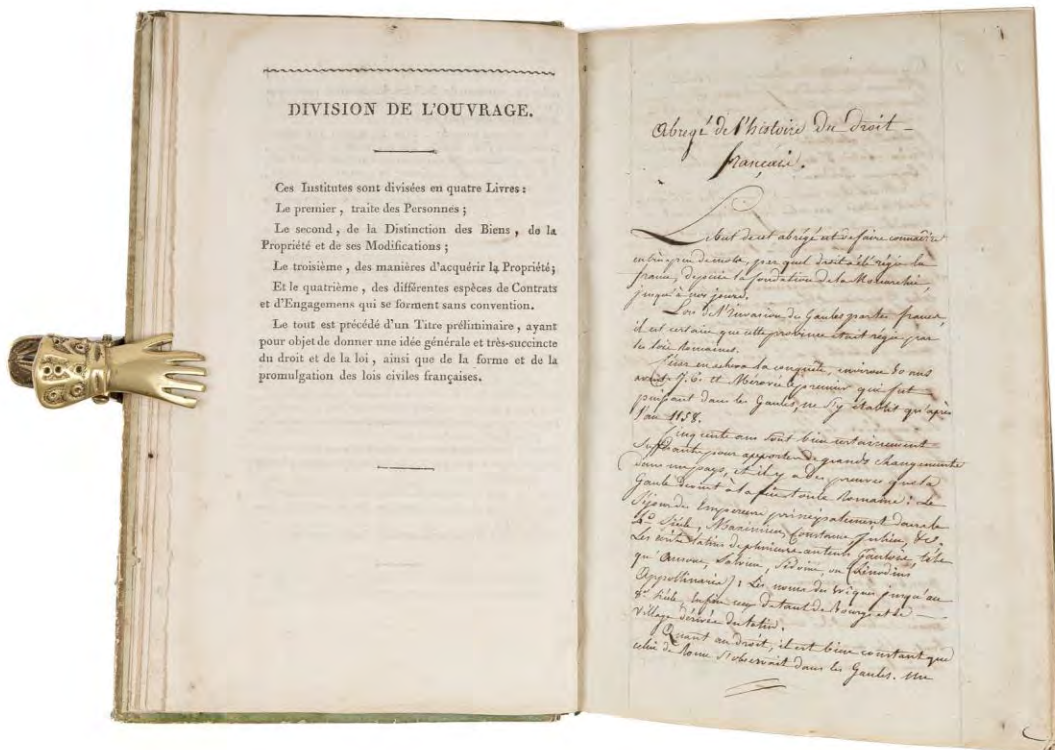 DIVISION DE L'OUVRAGE.
Ces Institutes sont divisées en quatre Livres :
Le premier, traite des Personnes ;
Le second, de la Distinction des Biens, de la
Propriété et de ses Modifications ;
Le troisième, des manières d'acquérir la Propriété ;
Et le quatrième, des différentes espèces de Contrats
et d'Engagemens qui se forment sans convention.
Le tout est précédé d'un Titre préliminaire, ayant
pour objet de donner une idée générale et très-succincte
du droit et de la loi, ainsi que de la forme et de la
promulgation des lois civiles françaises.
Abregé de l'histoire du droit
français.
Le but de cet abrégé est de faire connaître
en très peu de mots, par quel droit a été régie la
france, depuis la fondation de la Monarchie,
jusqu'à nos jours.
Lors de l'invasion des Gaules par les francs,
il est certain que cette province était régie par
les loix Romaines.
César en acheva la conquête, environ 50 ans
avant J. C. et Mérovée le premier qui fut
puissant dans les Gaules, ne s'y établit qu'après
l'an 1158.
Cinq cents ans sont bien certainement
suffisants pour apporter de grands changements
dans un pays, et il y a des preuves que la
Gaule devint à la fin toute Romaine : Le
Séjour des Empereurs principalement dans le
4.e Siècle, Maximien, Constance Julien, &c.
Les écrits latins de plusieurs auteurs Gaulois, tels
qu'Ausone, Salvien, Sidoine, ou
Appollinaris) : Les noms des Evêques jusqu'au
8.e Siècle, enfin ceux de tant de Bourgs et de
Village dérivés du latin.
Quant au droit, il est bien constant que
celui de Rome s'observait dans les Gaules. Un